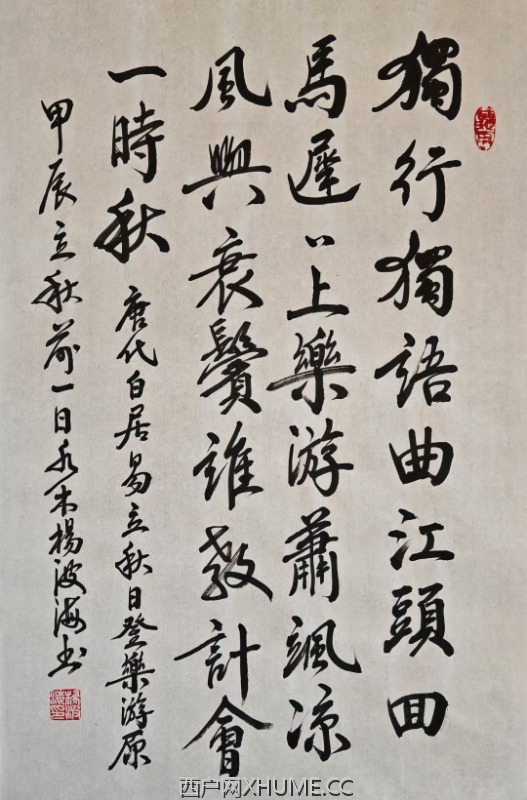 獨行獨語曲江頭回
馬遲〻上樂游蕭颯涼
風與衰鬢誰教計會
一時秋
唐代白居易立秋日登樂游原
甲辰立秋前一日於木楊波海书
西户网XHUME.CC